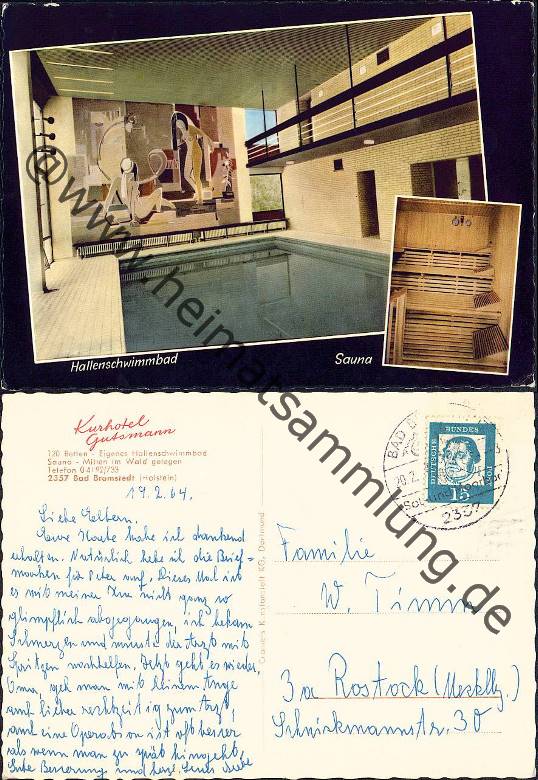 Hallenschwimmbad
Sauna
@www.heimatsammlung.de
Kurhotel
Gutsmann
120 Betten - Eigenes Hallenschwimmbad
Sauna - Mitten im Wald gelegen
Telefon 0 41 92/733
2357 Bad Bramstedt (Holstein)
19.2.64.
Liebe Eltern.
Eure Karte habe ich dankend
erhalten. Natürlich hebe ich die Brief-
marken für Peter auf. Dieses Mal ist
es mit meiner nicht ganz so
glimpflich abgegangen, ich bekam
Schmerzen und musste der Arzt mit
Spritzen nachhelfen. Jetzt geht es wieder,
Oma, geh man mit Deinem Auge
auch lieber rechtzeitig zum Arzt,
auch eine Operation ist oft besser
als wenn man zu spät hingeht,
Gute Besserung und herzl.
Cramers Kunstanstalt KG, Dortmund
BAD
20.2.
2357
DEUTSCHE BUNDESPOST
15
Familie
W. Timm
3a Rostock (Mecklbg.)
Schnickmannstr. 30